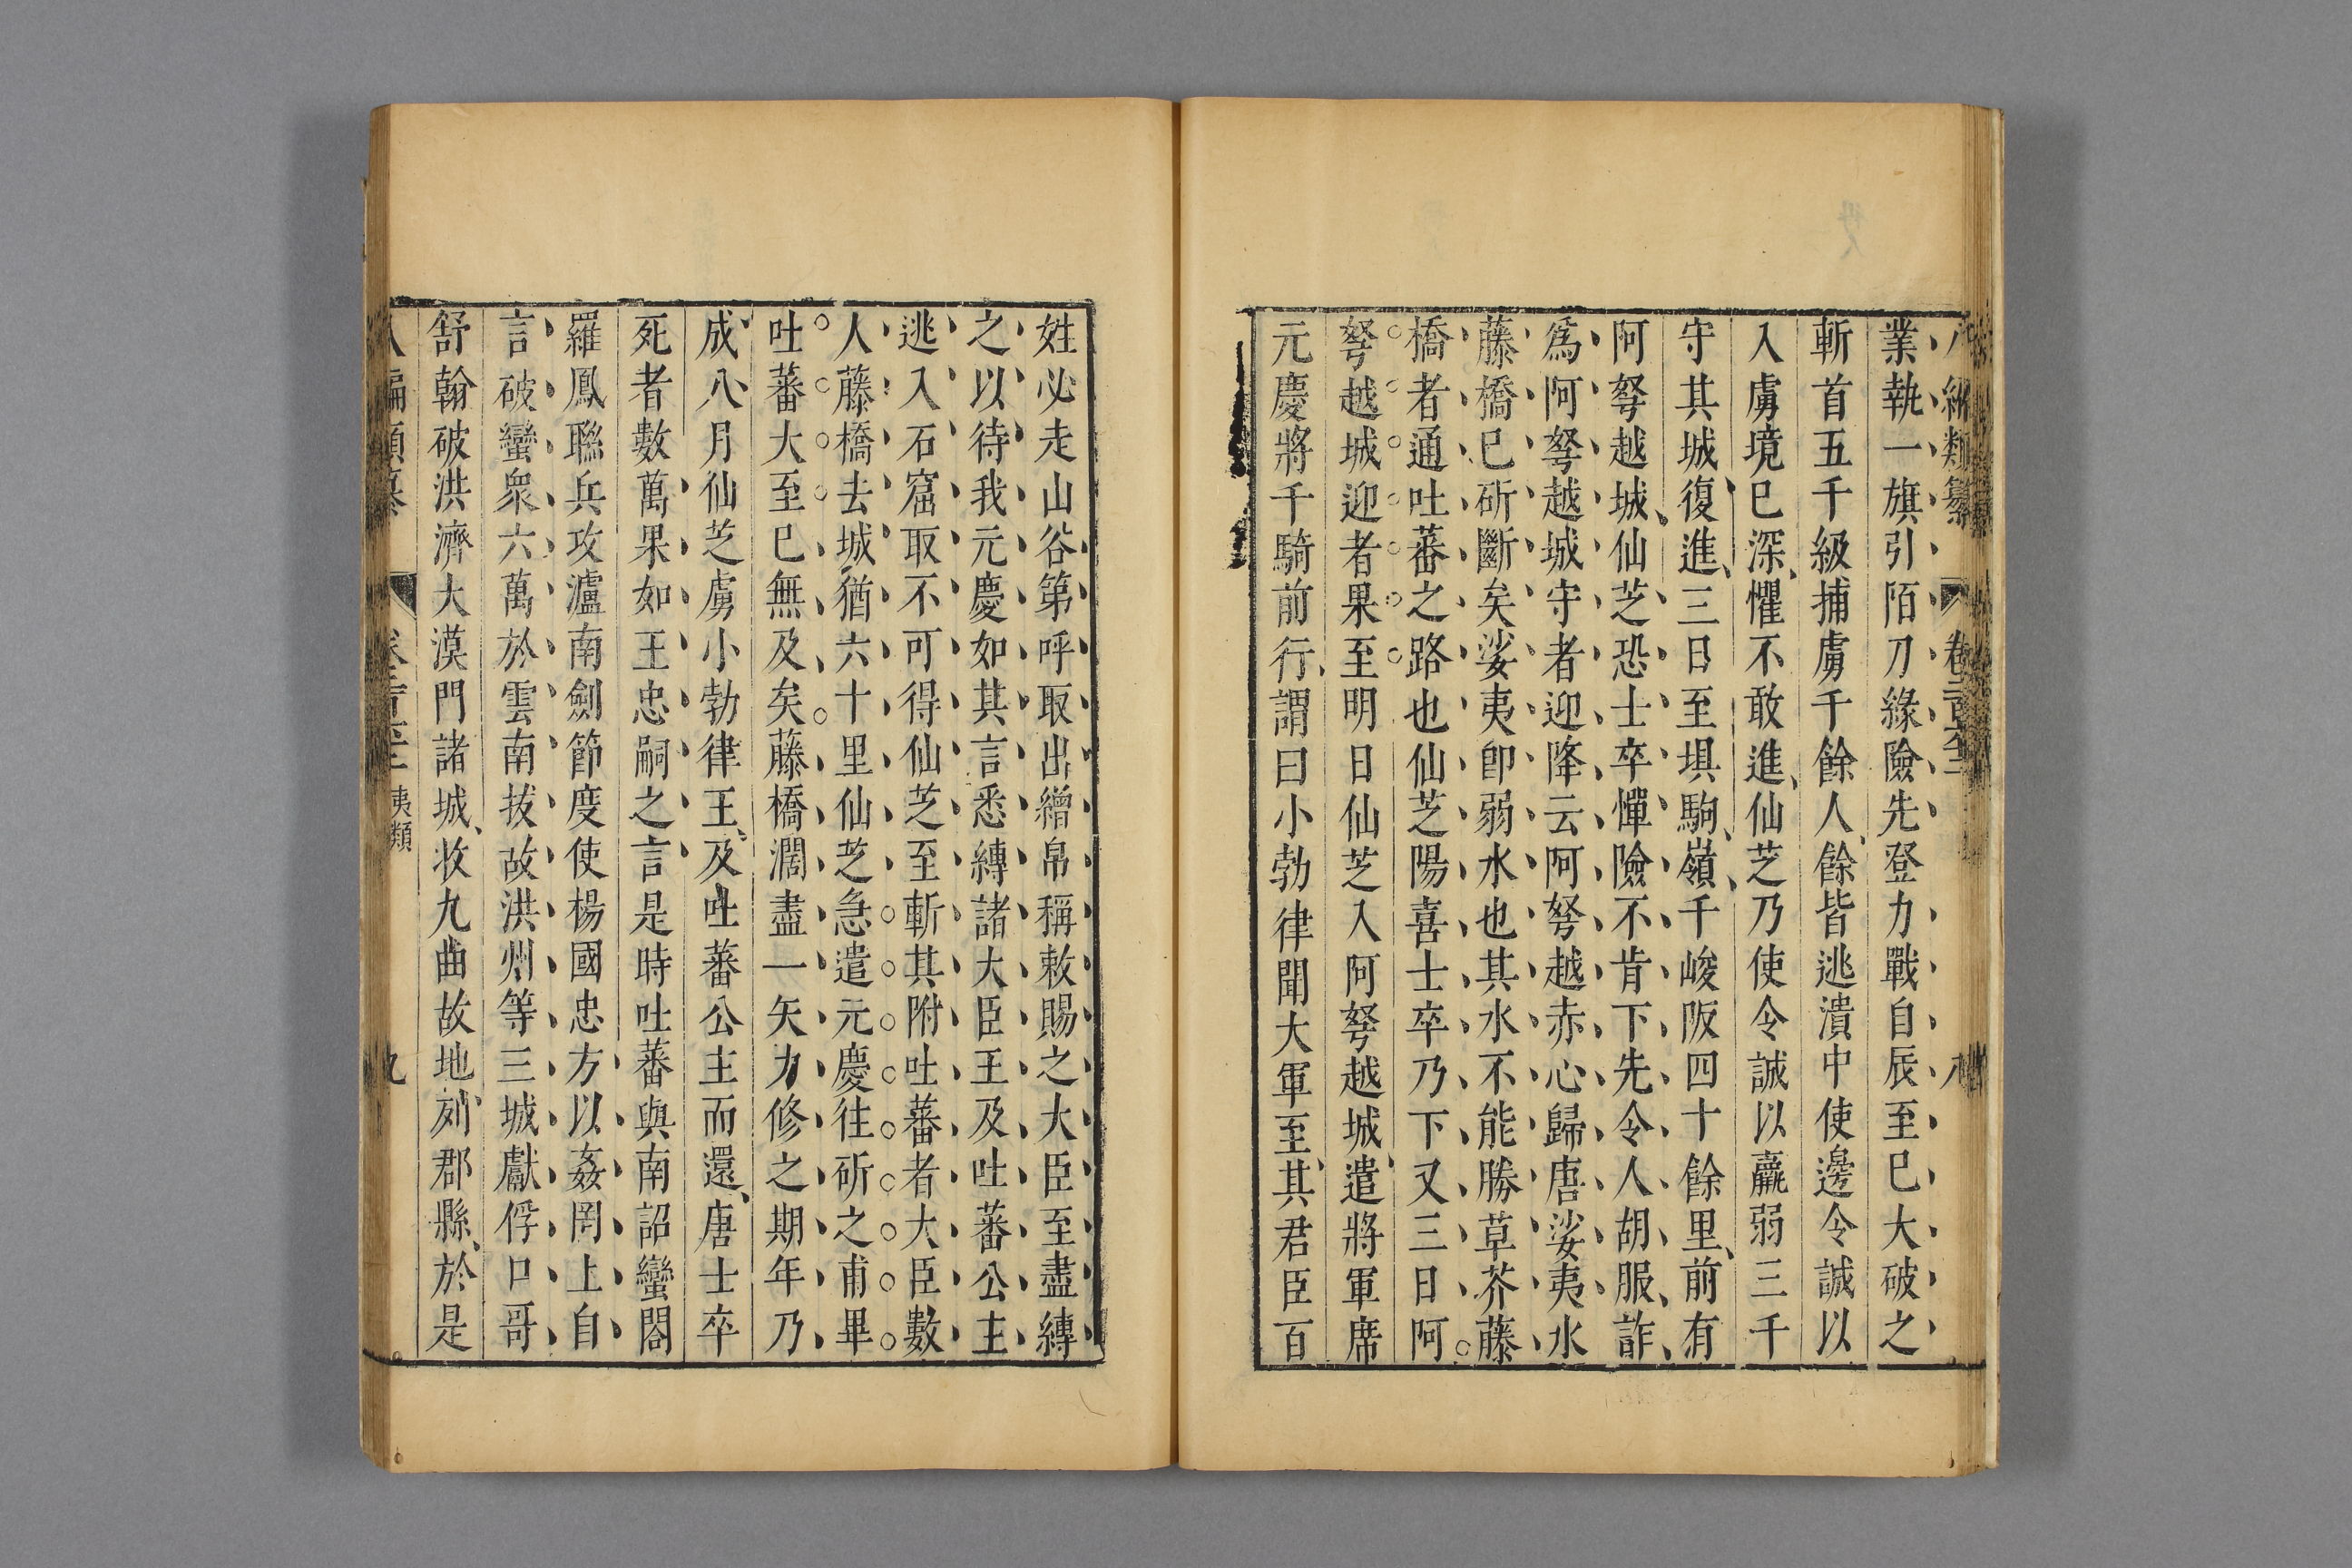 業執一旗引陌刀緣險先登力戰自辰至巳大破之
斬首五千級捕虜千餘人餘皆逃潰中使邊令誠以
入虜境已深懼不敢進仙芝乃使令誠以羸弱三千
守其城復進三日至坦駒嶺千峻阪四十餘里前有
阿弩越城仙芝恐士卒憚險不肯下先令人胡服詐
爲阿弩越城守者迎降云阿弩越赤心歸唐娑夷水
藤橋已斫斷矣娑夷卽弱水也其水不能勝草芥藤
橋者通吐蕃之路也仙芝陽喜士卒乃下又三日阿
弩越城迎者果至明日仙芝入阿弩越城遣將軍席
元慶將千騎前行謂曰小勃律聞大軍至其君臣百
姓必走山谷第呼取出繒帛稱敕賜之大臣至盡縛
之以待我元慶如其言悉縛諸大臣王及吐蕃公主
逃入石窟取不可得仙芝至斬其附吐蕃者大臣數
人藤橋去城猶六十里仙芝急遣元慶往斫之甫畢
吐蕃大至已無及矣藤橋濶盡一矢力修之期年乃
成八月仙芝虜小勃律王及吐蕃公主而還唐士卒
死者數萬果如王忠嗣之言是時吐蕃與南詔蠻閤
羅鳳聯兵攻瀘南劍節度使楊國忠方以姦罔上自
言破蠻衆六萬於雲南拔故洪州等三城獻俘口哥
舒翰破洪濟大漠門諸城收九曲故地列郡縣於是
夷類
九